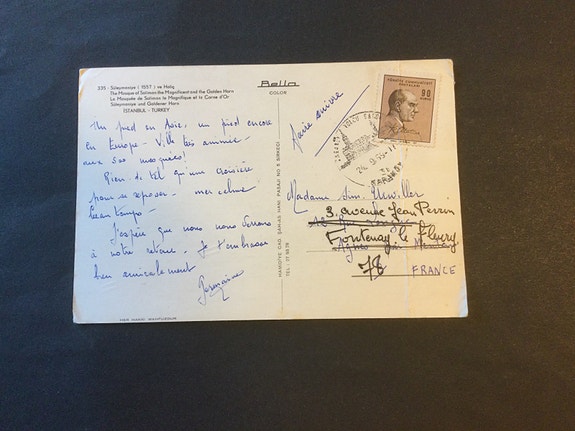 335 - Süleymaniye (1557) ve Haliç
The Mosque of Soliman the Magnificent and the Golden Horn
La Mosquée de Soliman le Magnifique et la Corne d'Or
Süleymaniye und Goldener Horn
İSTANBUL - TURKEY
Un pied en Asie, un pied encore
en Europe - Ville très animée -
aux 500 mosquées!
Rien de tel qu'une croisière
pour se reposer - mer calme
beau temps -
J'espère que nous nous verrons
à notre retour - Je t'embrasse
bien amicalement
Germaine
COLOR
HAMİDİYE CAD. PASAJI NO 5 SIRKECI
TEL :
Faire suivre
TÜRKİYE CUMHURİYETİ
POSTALARI
90
KURUŞ
Madame
3, avenue Jean Perrin
Fontenay le Fleury
78
FRANCE